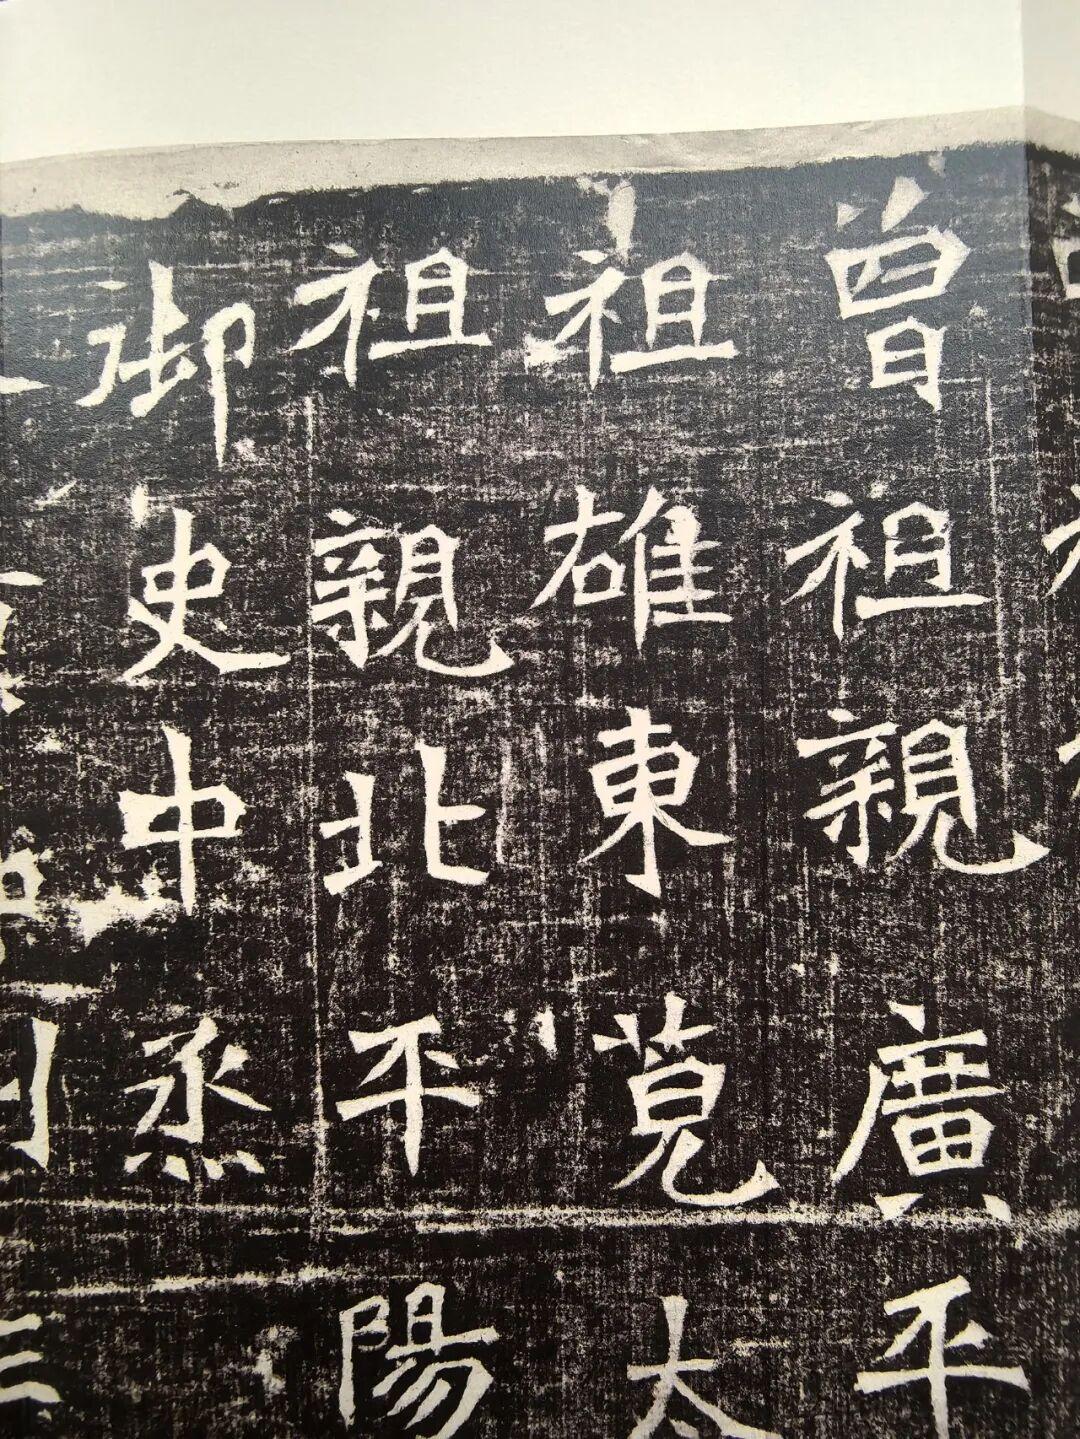 曾祖親廣平
祖雄東莞太
祖親北平陽
御史中丞